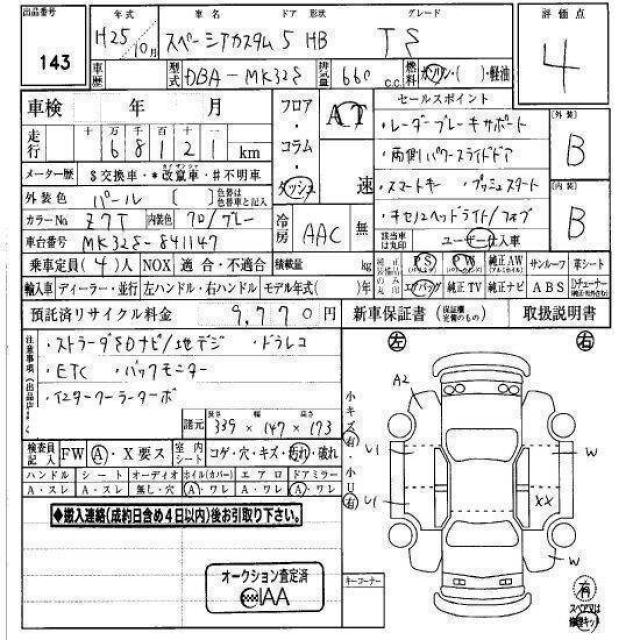 出品番号 年式 車名 ドア 形状 グレード 評価点
143 H25/10月 スペーシアカスタム 5 HB TS 4
車歴 型式 DBA-MK32S 排気量 660 c.c. 燃料 ガソリン・( )・軽油
車検 年 月 フロア・コラム・ダッシュ AT 速 セールスポイント [外装] B
走行 十 万 千 百 十 一 ・レーダーブレーキサポート
1 6 8 1 2 1 km ・両側パワースライドドア
メーター歴 $交換車・*改竄車・#不明車 ・スマートキー ・プッシュスタート [内装] B
外装色 パール [ ] 色替は色替車色と記入 ・キセノンヘッドライト/フォグ
カラーNo Z7T 内装色 クロ/グレー 冷房 AAC 無
車台番号 MK32S-841147 該当車は丸印 ユーザー仕入車
乗車定員(4)人 NOX 適合・不適合 積載量 kg 純正装備品のみ丸印 PS PW 純正AW サンルーフ 革シート
輸入車 ディーラー・並行 左ハンドル・右ハンドル モデル年式( )年 エアバッグ 純正TV 純正ナビ ABS Dチューナー
預託済リサイクル料金 9,770円 新車保証書(保証継定備のもの) 取扱説明書
注意事項(出品店 ・ストラーダSDナビ/地デジ ・ドラレコ
・ETC ・バックモニター
・インタークーラーターボ
諸元 長さ 幅 高さ
339×147×173
検査員記入 FW A・X要ス 室内シート コゲ・穴・キズ・汚れ・破れ
ハンドル シート オーディオ ホイル(カバー) エアロ ドアミラー
A・スレ A・スレ 無し・穴 A・ワレ A・ワレ A・ワレ
◆搬入連絡(成約日含め4日以内)後お引取り下さい。
オークション査定済
IAA
キーコーナー
左 右
小キズ有・小U有
A2
U1 W
U1 XX
W
有
スペア又は
修理キット